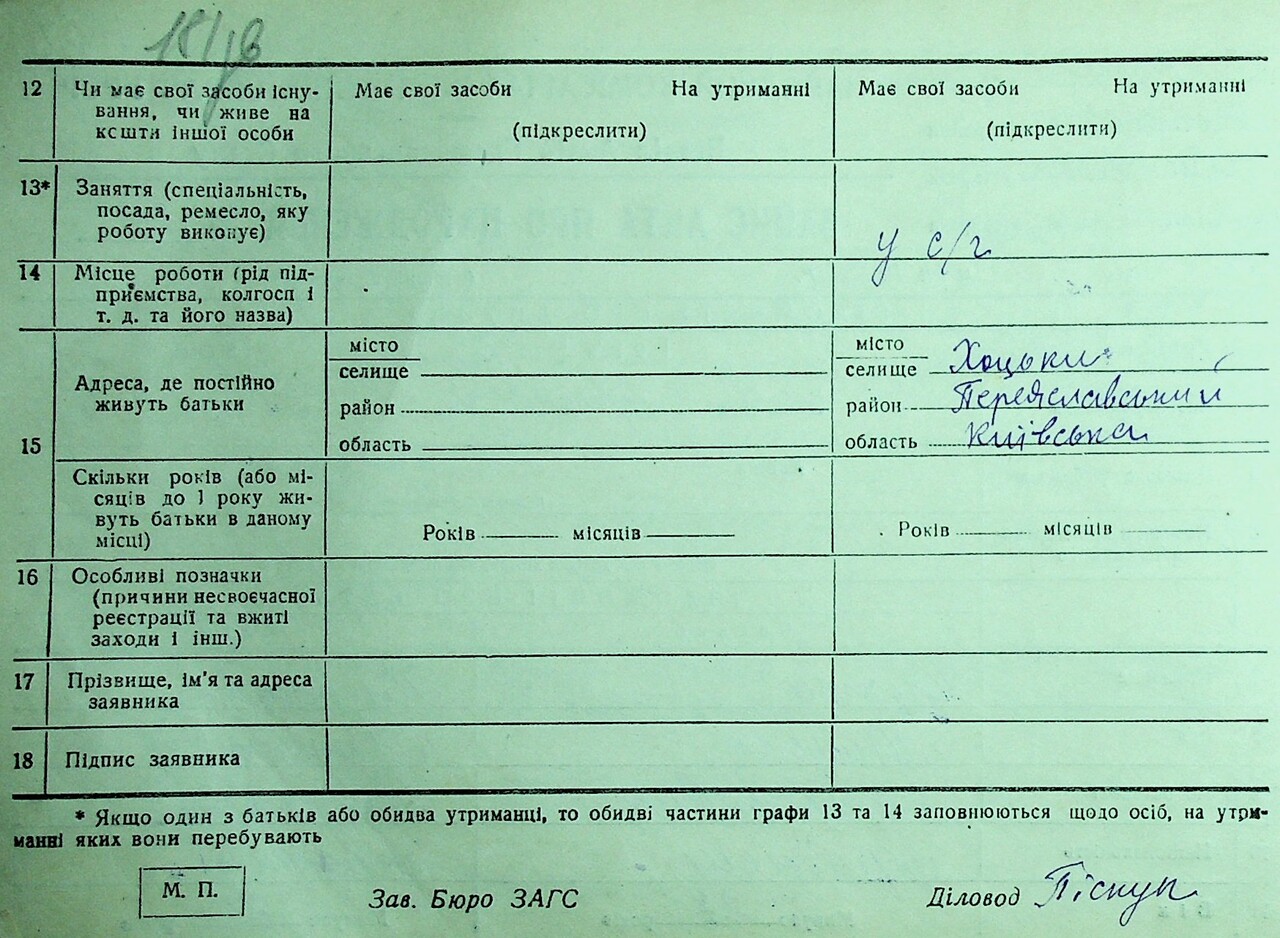 12 Чи має свої засоби існу- Має свої засоби На утриманні Має свої засоби На утриманні
вання, чи живе на
кошти іншої особи (підкреслити) (підкреслити)
13* Заняття (спеціальність,
посада, ремесло, яку
роботу виконує)
у с/г
14 Місце роботи (рід під-
приємства, колгосп і
т. д. та його назва)
15 Адреса, де постійно
живуть батьки
місто
селище
район
область
місто
селище Хоцьки
район Переяславський
область Київська
Скільки років (або мі-
сяців до 1 року жи-
вуть батьки в даному
місці)
Років місяців Років місяців
16 Особливі позначки
(причини несвоєчасної
реєстрації та вжиті
заходи і інш.)
17 Прізвище, ім'я та адреса
заявника
18 Підпис заявника
* Якщо один з батьків або обидва утриманці, то обидві частини графи 13 та 14 заповнюються щодо осіб, на утри-
манні яких вони перебувають
М. П. Зав. Бюро ЗАГС Діловод